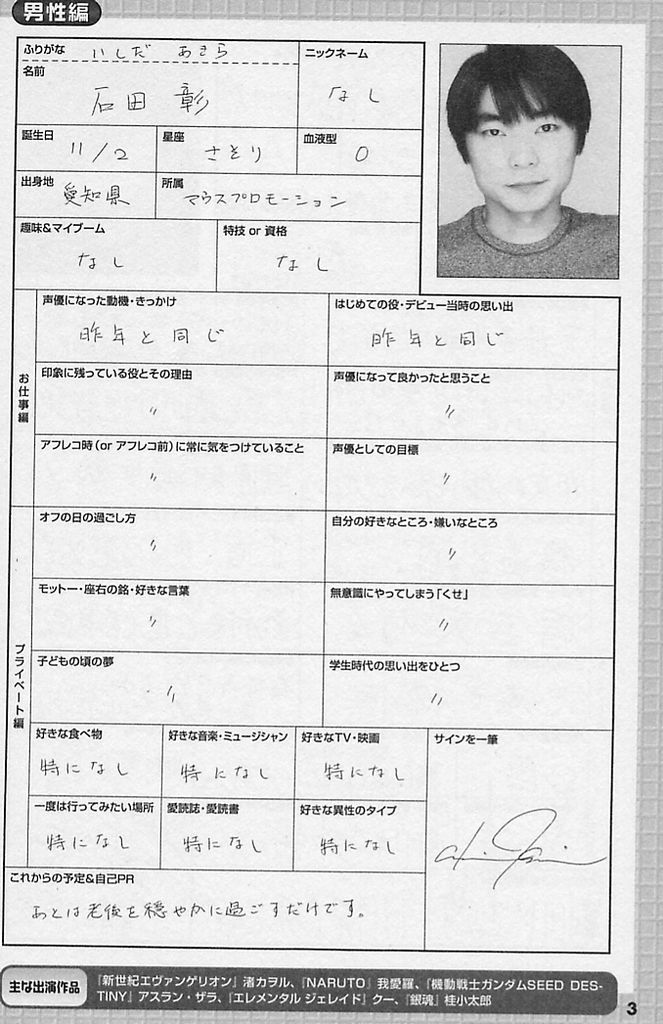 男性編
ふりがな いしだ あきら
ニックネーム
なし
名前
石田 彰
誕生日
11/2
星座
さそり
血液型
O
出身地
愛知県
所属
マウスプロモーション
趣味&マイブーム
なし
特技 or 資格
なし
お仕事編
声優になった動機・きっかけ
昨年と同じ
はじめての役・デビュー当時の思い出
昨年と同じ
印象に残っている役とその理由
〃
声優になって良かったと思うこと
〃
アフレコ時(or アフレコ前)に常に気をつけていること
〃
声優としての目標
〃
プライベート編
オフの日の過ごし方
〃
自分の好きなところ・嫌いなところ
〃
モットー・座右の銘・好きな言葉
〃
無意識にやってしまう「くせ」
〃
子どもの頃の夢
〃
学生時代の思い出をひとつ
〃
好きな食べ物
特になし
好きな音楽・ミュージシャン
特になし
好きなTV・映画
特になし
サインを一筆
一度は行ってみたい場所
特になし
愛読誌・愛読書
特になし
好きな異性のタイプ
特になし
これからの予定&自己PR
あとは老後を穏やかに過ごすだけです。
主な出演作品
『新世紀エヴァンゲリオン』渚カヲル、『NARUTO』我愛羅、『機動戦士ガンダムSEED DES-
TINY』アスラン・ザラ、『エレメンタル ジェレイド』クー、『銀魂』桂小太郎
3